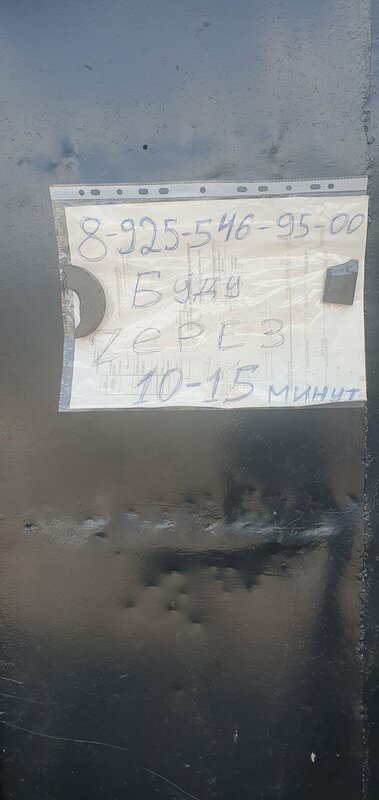 8-925-546-95-00
Буду
ZеРЕЗ
10-15 минут